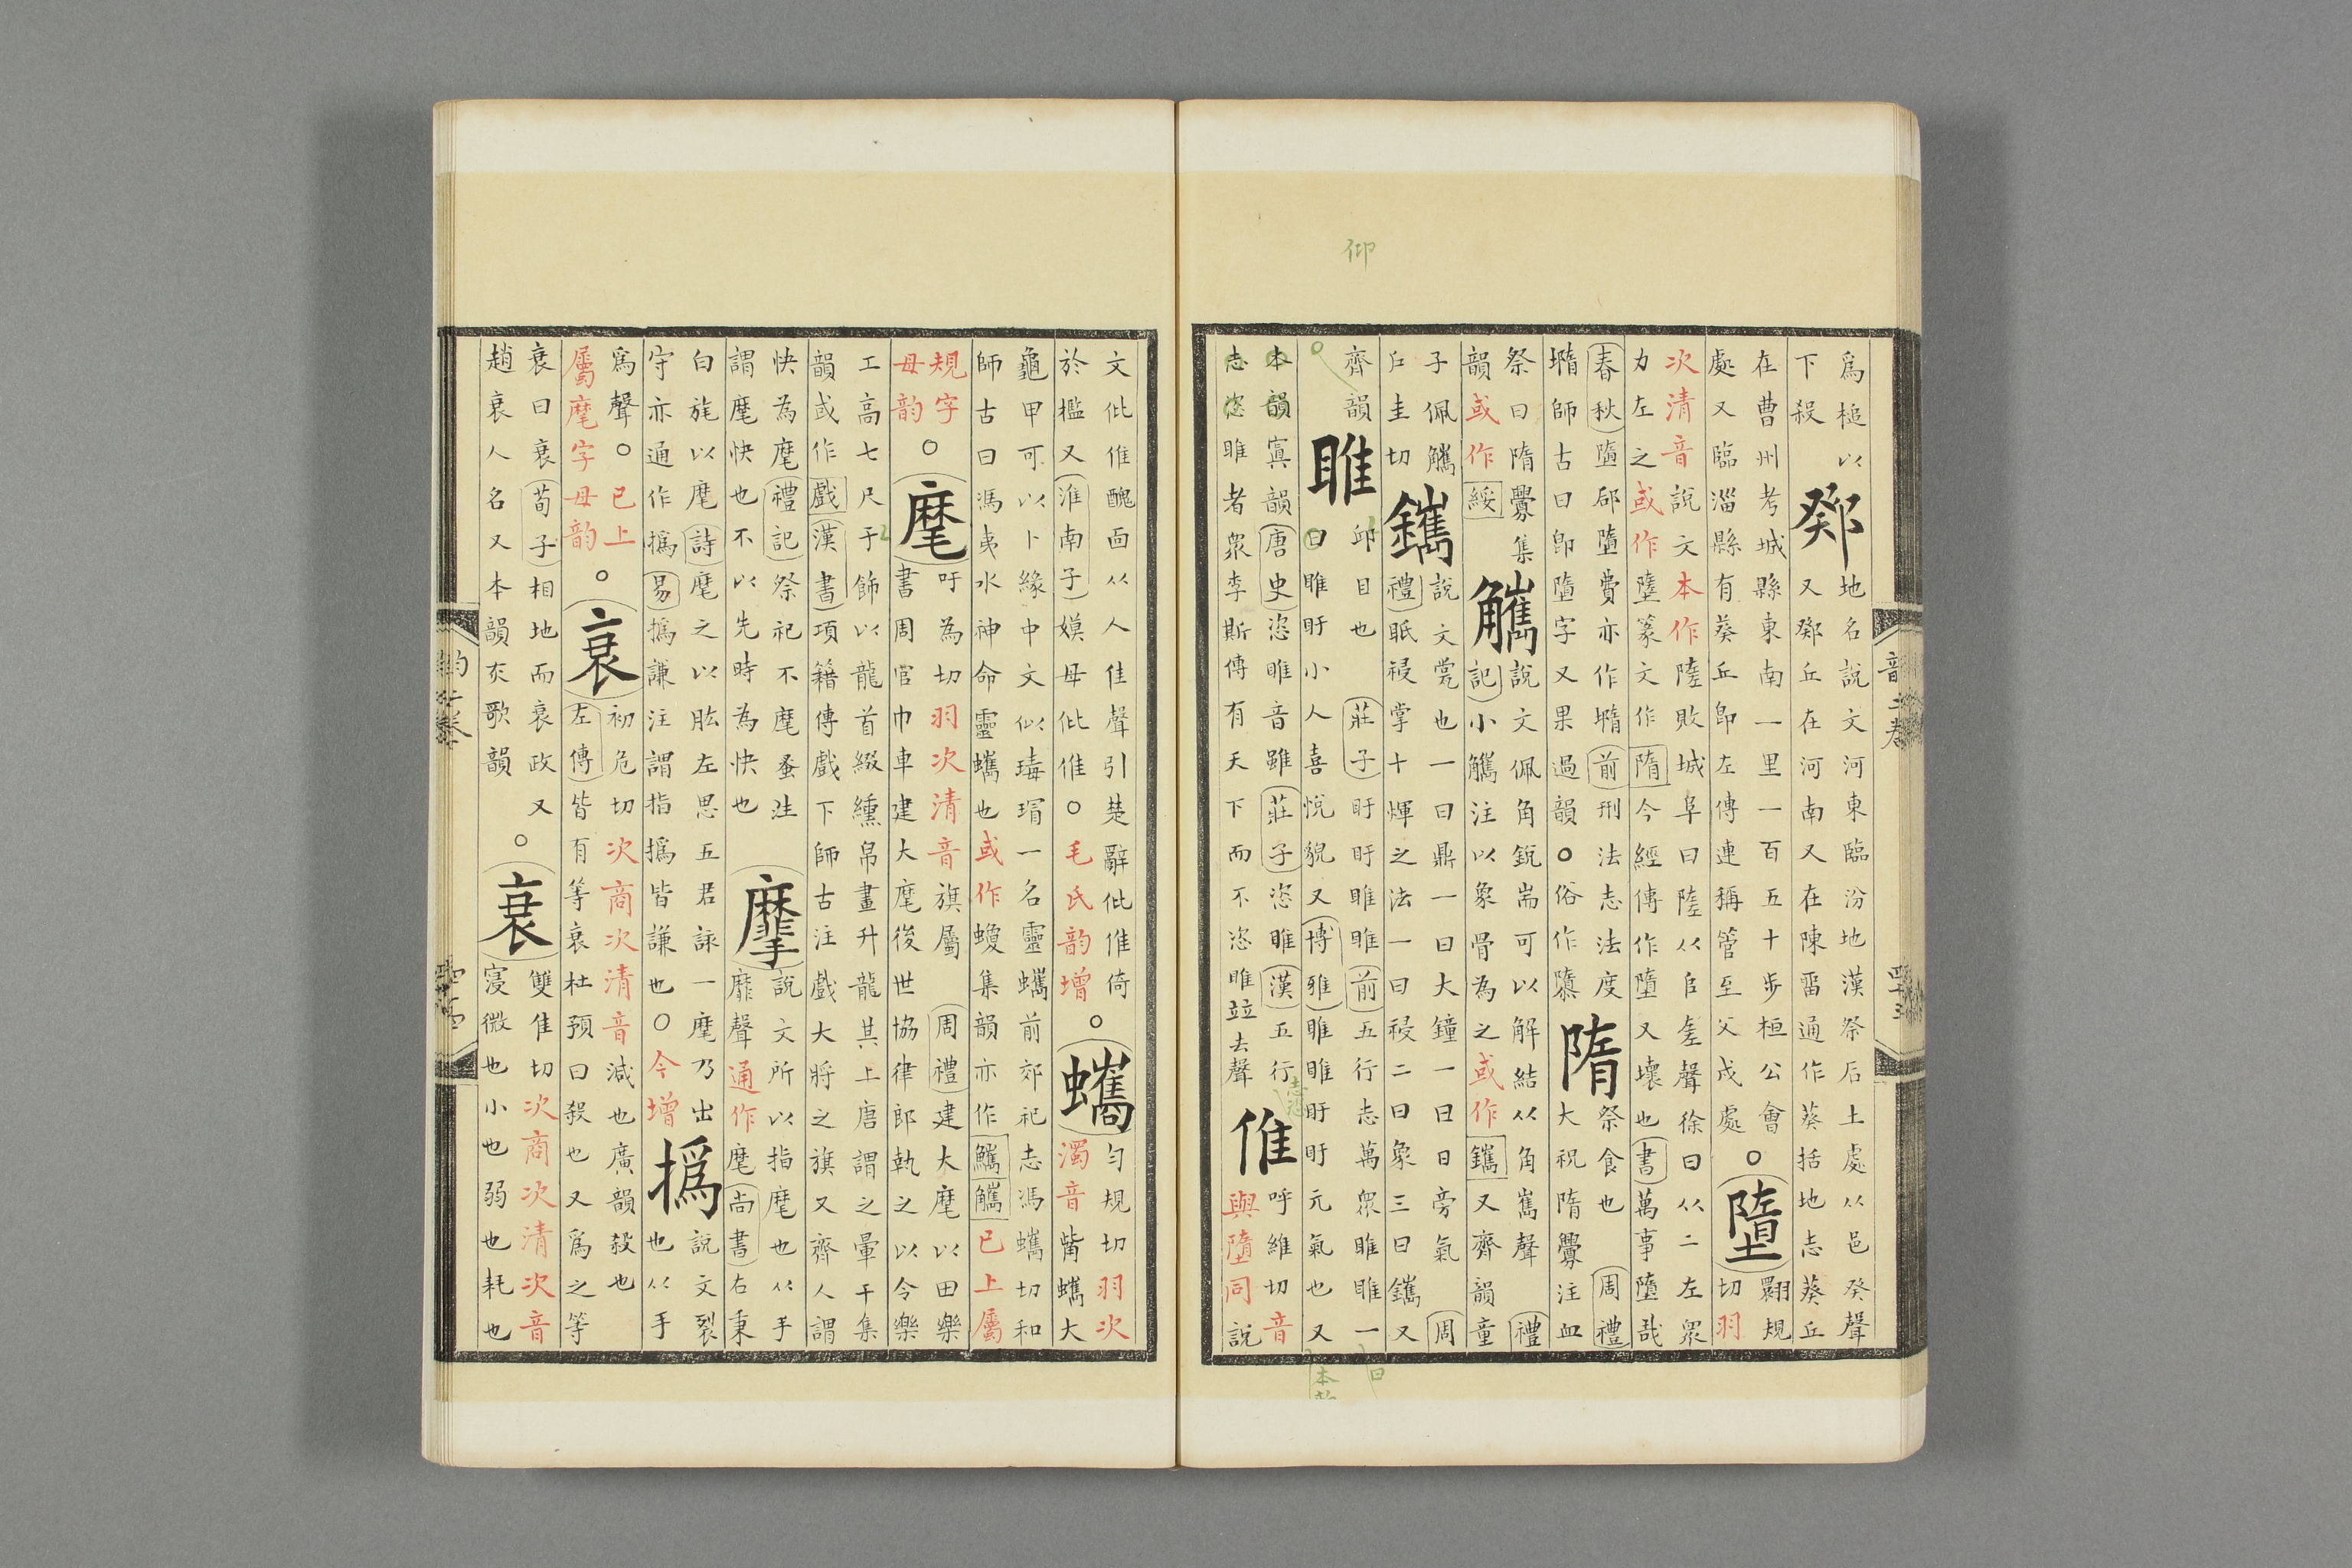 韵二卷
爲槌以
下殺
鄈
地名說文河東臨汾地漢祭后土處从邑癸聲
又鄈丘在河南又在陳畱通作葵括地志葵丘
在曹州考城縣東南一里一百五十步桓公會
處又臨淄縣有葵丘即左傳連稱管至父戍處○
墮
翾規
切羽
次清音說文本作隓敗城阜曰隓从𨸏㒸聲徐曰从二左眾
力左之或作墮篆文作隋今經傳作墮又壞也書萬事墮哉
春秋墮郈墮費亦作墯前刑法志法度
墯師古曰即墮字又果過韻○俗作隳
隋
祭食也周禮
大祝隋釁注血
祭曰隋釁集
韻或作綏
觿
說文佩角銳耑可以解結从角巂聲禮
記小觿注以象骨為之或作鑴又齊韻童
子佩觿
戶圭切
鑴
說文㼜也一曰鼎一曰大鐘一曰日旁氣周
禮眡祲掌十煇之法一曰祲二曰象三曰鑴又
仰
齊韻
睢
卬目也莊子盱盱睢睢前五行志萬眾睢睢一
曰睢盱小人喜悅貌又博雅睢睢盱盱元氣也又
曰
本韻寘韻唐史恣睢音雖莊子恣睢漢五行
志恣睢者眾李斯傳有天下而不恣睢竝去聲
倠
呼維切音
與墮同說
文仳倠醜面从人隹聲引楚辭仳倠倚
於檻又淮南子嫫母仳倠○毛氏韵增○
蠵
勻規切羽次
濁音觜蠵大
龜甲可以卜緣中文似瑇瑁一名靈蠵前郊祀志馮蠵切和
師古曰馮夷水神命靈蠵也或作蠳集韻亦作已上屬
規字
母韵○
麾
吁為切羽次清音旗屬周禮建大麾以田樂
書周官巾車建大麾後世協律郎執之以令樂
工高七尺于飾以龍首綴纁帛畫升龍其上唐謂之暈干集
韻或作戲漢書項籍傳戲下師古注戲大將之旗又齊人謂
快為麾禮記祭祀不麾蚤注
謂麾快也不以先時為快也
摩
說文所以指麾也从手
靡聲通作麾尚書右秉
白旄以麾詩麾之以肱左思五君詠一麾乃出
守亦通作撝易撝謙注謂指撝皆謙也○今增
撝
說文裂
也从手
爲聲○已上
屬麾字母韵○
衰
初危切次商次清音減也廣韻殺也
左傳皆有等衰杜預曰殺也又爲之等
衰曰衰荀子相地而衰政又
趙衰人名又本韻灰歌韻○
衰
雙隹切次商次清次音
寖微也小也弱也耗也